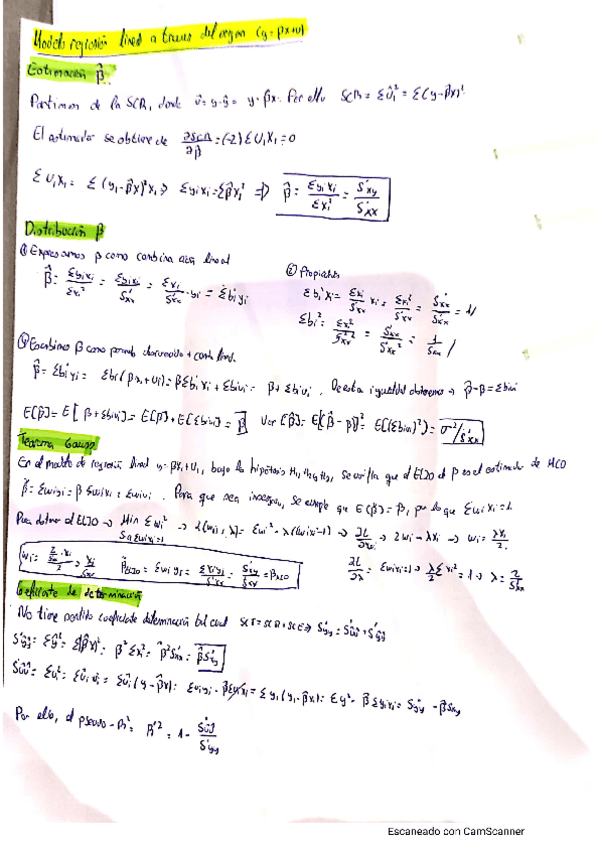 Modelo regresión lineal a traves del origen (y = βx+u)
Estimación β̂
Partimos de la SCR, donde û = y-ŷ = y-β̂x. Por ello SCR = Σû² = Σ(y-β̂x)²
El estimador se obtiene de ∂SCR/∂β = (-2)ΣUiXi = 0
ΣUiXi = Σ(yi-β̂x) Σyixi = Σβ̂xi² ⇒ β̂ = Σyixi/Σxi² = S'xy/S'xx
Distribución β
① Expresamos β como combinación lineal
β̂ = = Σbiyi
② Propiedades
Σbixi = Σxi/S'xx xi = Σxi²/S'xx = S'xx/S'xx = 1
Σbi² = Σxi²/S'xx² = S'xx/S'xx² = 1/S'xx
Escribimos β como + comb. lineal
β̂ = Σbiyi = Σbi(βxi+ui) = βΣbixi + Σbiui = β + Σbiui. De esta igualdad obtenemos → β̂-β = Σbiui
E[β̂] = E[β+Σbiui] = E[β] + E[Σbiui] = β Var[β̂] = E[(β̂-β)]² = E[(Σbiui)²] = σ²/S'xx
Teorema Gauss
En el modelo de regresión lineal y = βxi+ui, bajo las hipótesis se verifica que el ELIO de β es el estimador de MCO
β̂ = Σwiyi = βΣwixi + Σwiui. Para que sea insesgado, se cumple que E(β̂) = β, por lo que Σwixi = 1.
Para obtener el ELIO → Min Σwi² → L(wi, λ) = Σwi² - λ(Σwixi-1) → ∂L/∂wi → 2wi - λxi → wi = λxi/2
Sa Σwixi=1
∂L/∂λ = Σwixi = 1 → λ/2 Σxi² = 1 → λ = 2/S'xx
wi = xi/S'xx β̂ELIO = Σwiyi = Σxiyi/S'xx = S'xy/S'xx = β̂MCO
Coeficiente de determinación
No tiene sentido coeficiente determinación tal cual SCT = SCR + SCE ⇒ S'yy = S'ûû + S'ŷŷ
S'ŷŷ = Σŷ² = Σ(β̂x)² = β̂²Σxi² = β̂²S'xx = β̂S'xy
S'ûû = Σûi² = Σûiûi = Σûi(y-β̂x) = Σûiyi - β̂Σûixi = Σyi(yi-β̂xi) = Σy² - β̂Σyixi = S'yy - β̂S'xy
Por ello, el pseudo-R² = R'² = 1 - S'ûû/S'yy
Escaneado con CamScanner